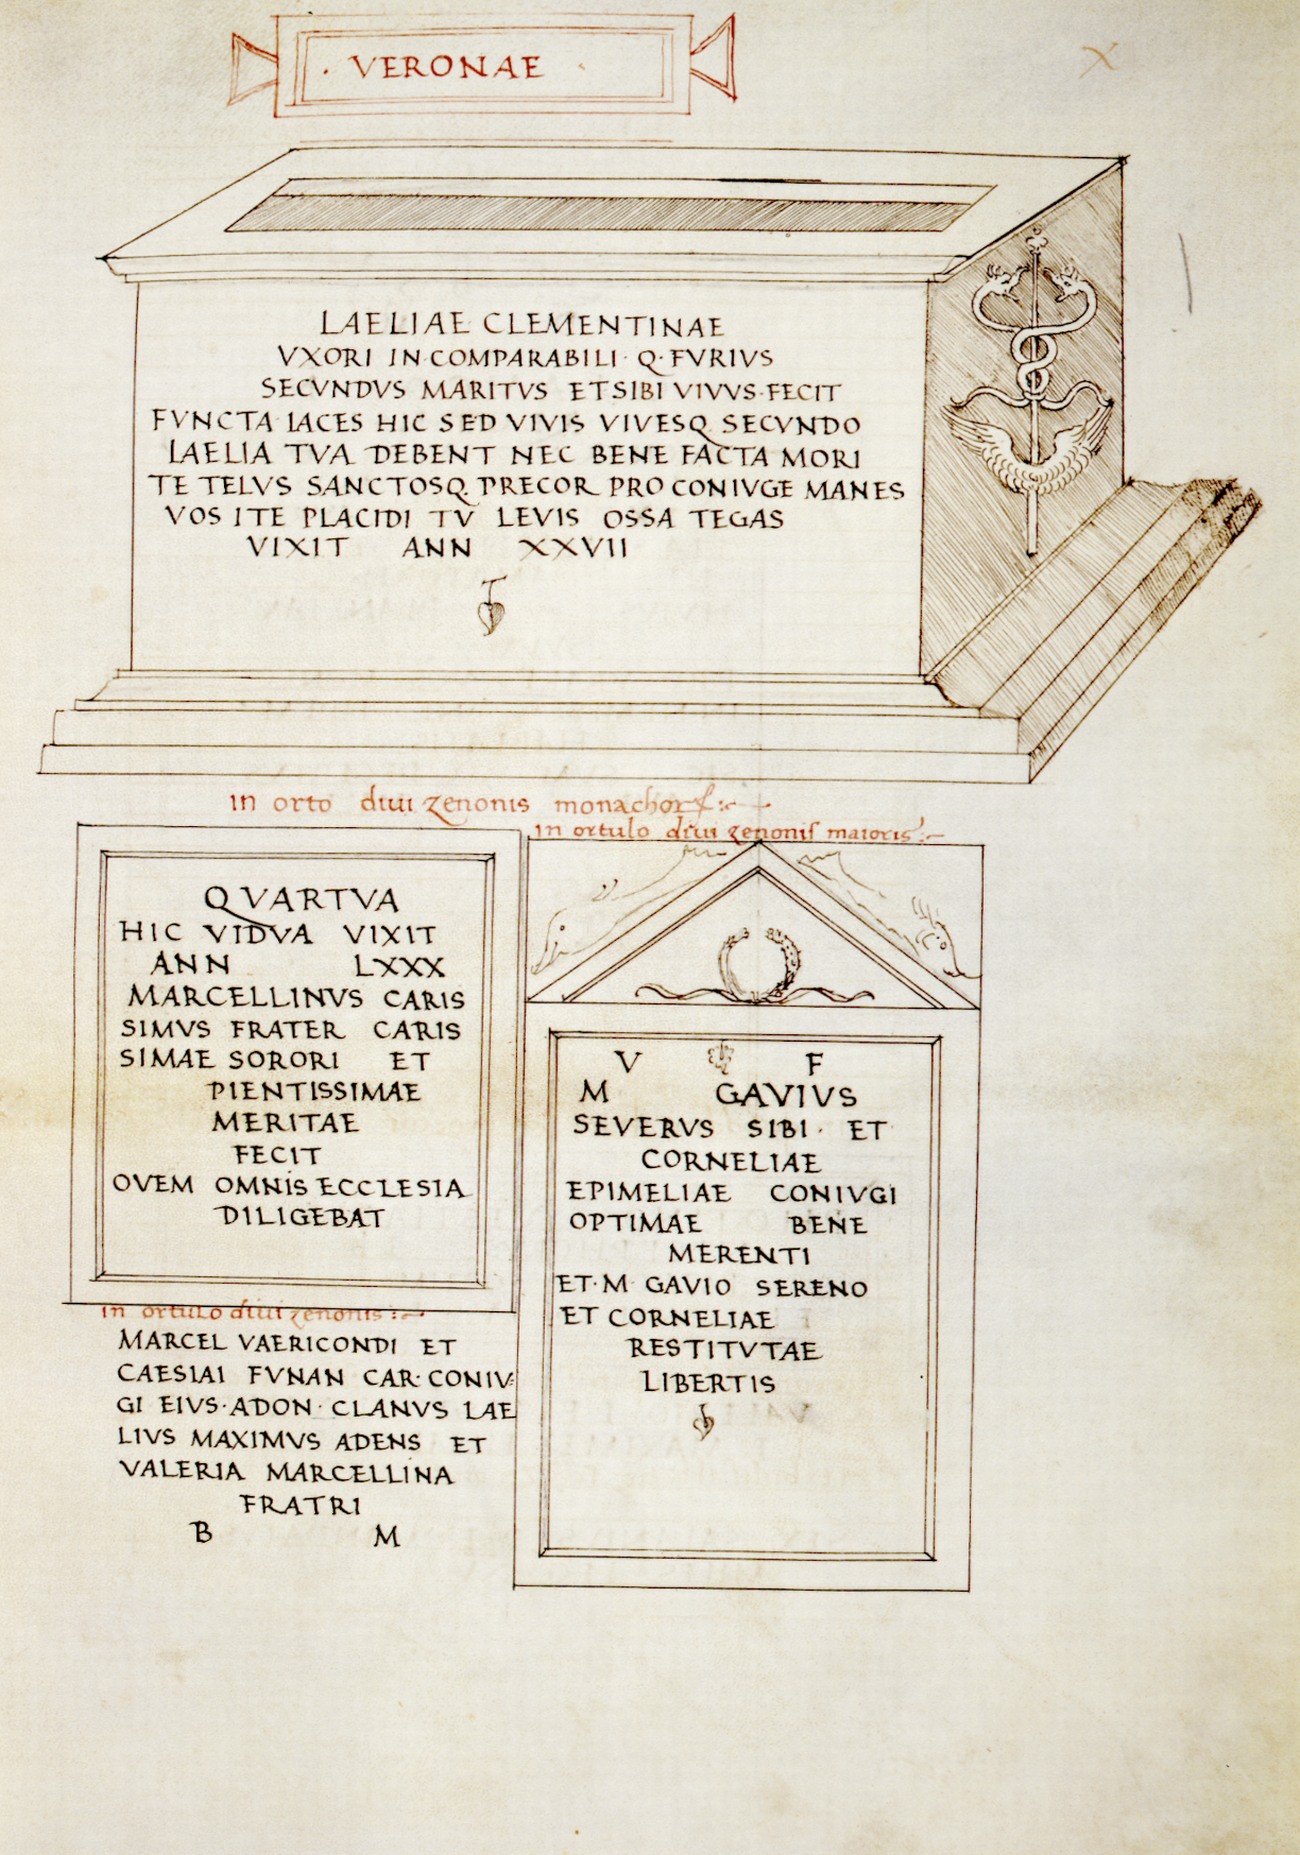 · VERONAE ·
X
LAELIAE CLEMENTINAE
VXORI IN·COMPARABILI· Q·FVRIVS
SECVNDVS MARITVS ETSIBI VIVVS·FECIT
FVNCTA IACES HIC SED VIVIS VIVESQ SECVNDO
LAELIA TVA DEBENT NEC BENE FACTA MORI
TE TELVS SANCTOSQ PRECOR PRO CONIVGE MANES
VOS ITE PLACIDI TV LEVIS OSSA TEGAS
VIXIT ANN XXVII
in orto diui zenonis monachorꝝ:~
in ortulo diui zenonis maioris:~
QVARTVA
HIC VIDVA VIXIT
ANN LXXX
MARCELLINVS CARIS
SIMVS FRATER CARIS
SIMAE SORORI ET
PIENTISSIMAE
MERITAE
FECIT
OVEM OMNIS ECCLESIA
DILIGEBAT
V F
M GAVIVS
SEVERVS SIBI· ET
CORNELIAE
EPIMELIAE CONIVGI
OPTIMAE BENE
MERENTI
ET·M GAVIO SERENO
ET CORNELIAE
RESTITVTAE
LIBERTIS
in ortulo diui zenonis:~
MARCEL VAERICONDI ET
CAESIAI FVNAN CAR·CONIV:
GI EIVS·ADON·CLANVS LAE
LIVS MAXIMVS ADENS ET
VALERIA MARCELLINA
FRATRI
B M